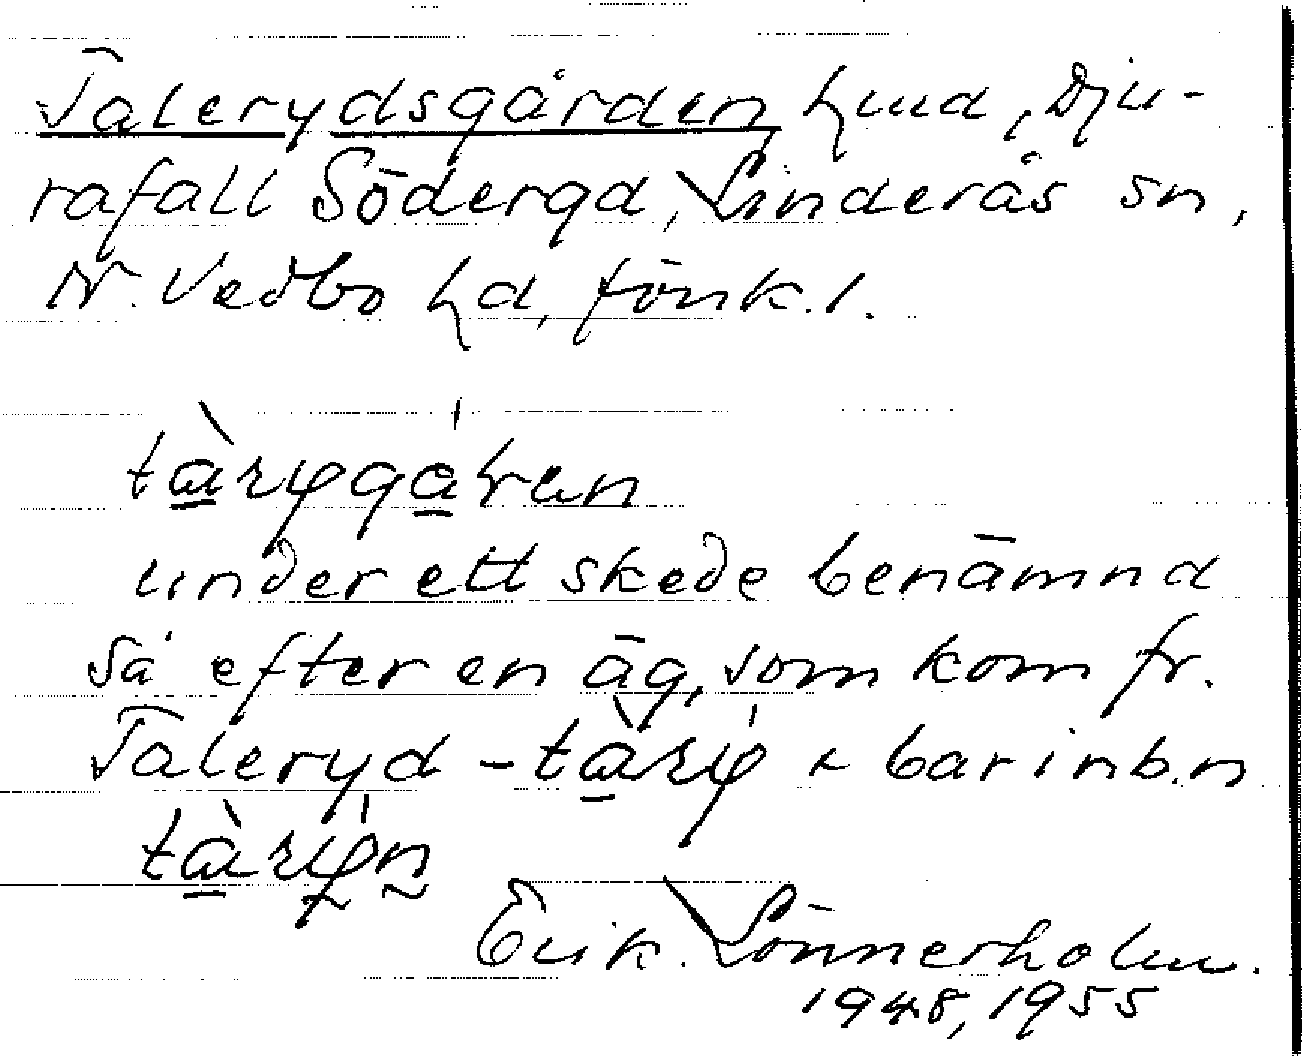 Talerydsgården hmd, Dju-
rafall Södergd, Linderås sn,
N. Vedbo hd, Jönk. l.
under ett skede benämnd
så efter en äg, som kom fr.
Taleryd - bar inb.n
Erik. Lönnerholm.
1948, 1955